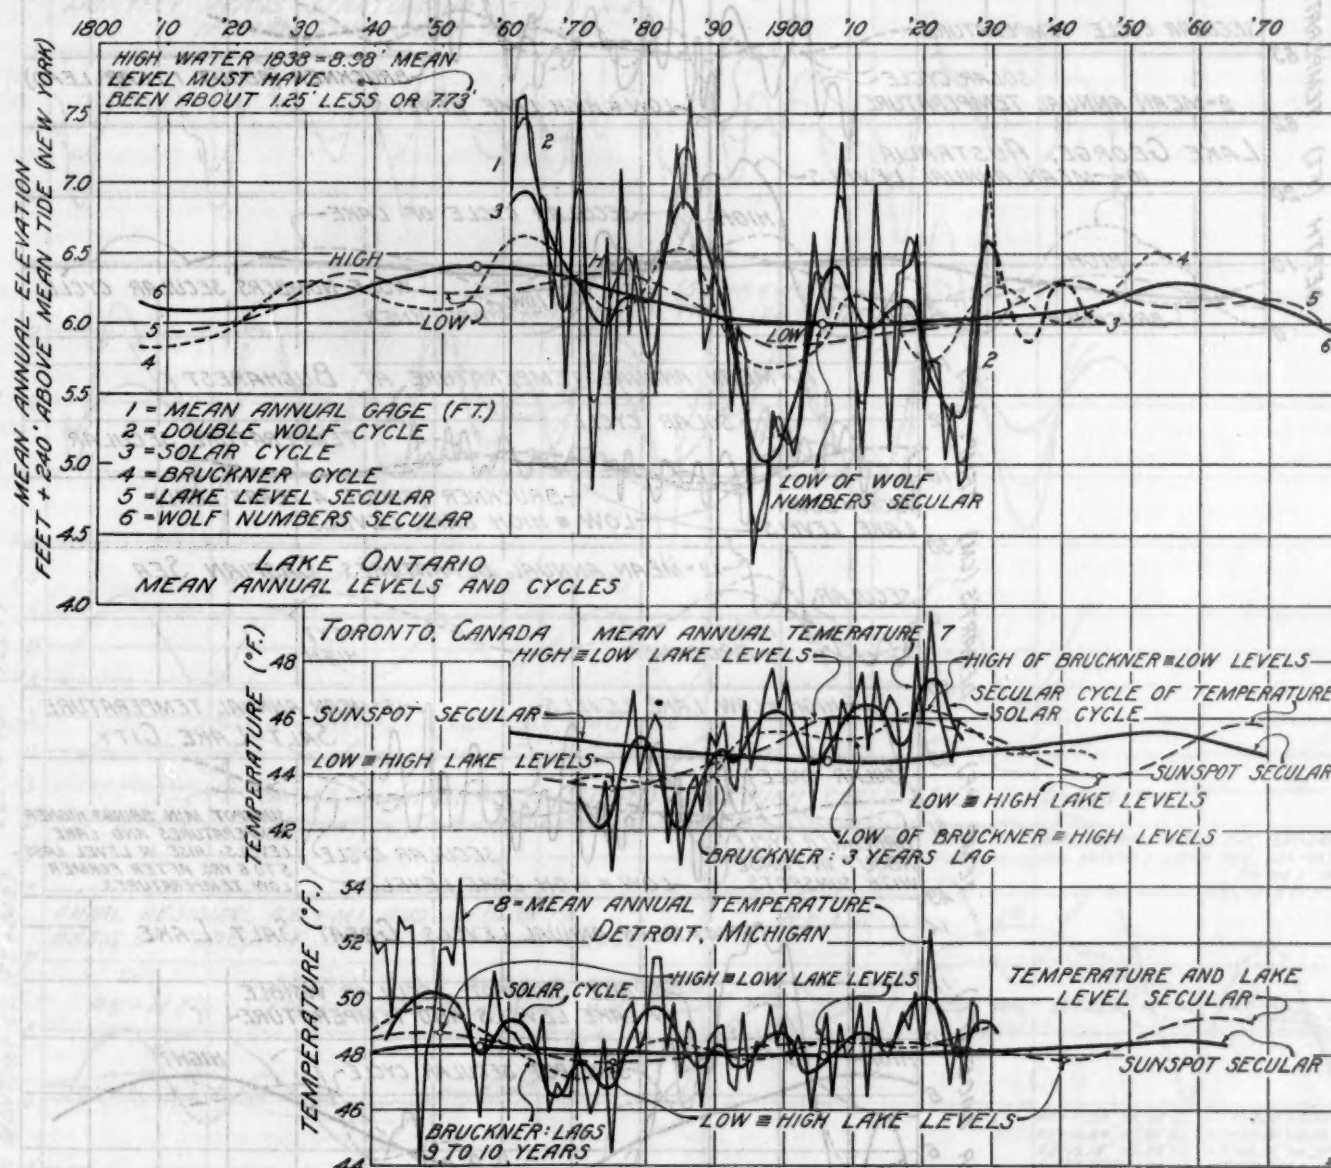 1800 '10 '20 '30 '40 '50 '60 '70 '80 '90 1900 '10 '20 '30 '40 '50 '60 '70
HIGH WATER 1838 = 8.98' MEAN
LEVEL MUST HAVE
BEEN ABOUT 1.25' LESS OR 7.73'
MEAN ANNUAL ELEVATION
FEET + 240' ABOVE MEAN TIDE (NEW YORK)
7.5
7.0
6.5
6.0
5.5
5.0
4.5
4.0
1
2
3
HIGH
H
6
5
4
LOW
LOW
4
3
2
5
6
1 = MEAN ANNUAL GAGE (FT.)
2 = DOUBLE WOLF CYCLE
3 = SOLAR CYCLE
4 = BRUCKNER CYCLE
5 = LAKE LEVEL SECULAR
6 = WOLF NUMBERS SECULAR
LOW OF WOLF
NUMBERS SECULAR
LAKE ONTARIO
MEAN ANNUAL LEVELS AND CYCLES
TORONTO, CANADA MEAN ANNUAL TEMERATURE 7
TEMPERATURE (°F.)
48
46
44
42
HIGH ≡ LOW LAKE LEVELS
HIGH OF BRUCKNER ≡ LOW LEVELS
SECULAR CYCLE OF TEMPERATURE
SOLAR CYCLE
SUNSPOT SECULAR
LOW ≡ HIGH LAKE LEVELS
SUNSPOT SECULAR
LOW ≡ HIGH LAKE LEVELS
LOW OF BRUCKNER ≡ HIGH LEVELS
BRUCKNER: 3 YEARS LAG
TEMPERATURE (°F.)
54
52
50
48
46
44
8 = MEAN ANNUAL TEMPERATURE
DETROIT, MICHIGAN
HIGH ≡ LOW LAKE LEVELS
SOLAR CYCLE
TEMPERATURE AND LAKE
LEVEL SECULAR
SUNSPOT SECULAR
LOW ≡ HIGH LAKE LEVELS
BRUCKNER: LAGS
9 TO 10 YEARS